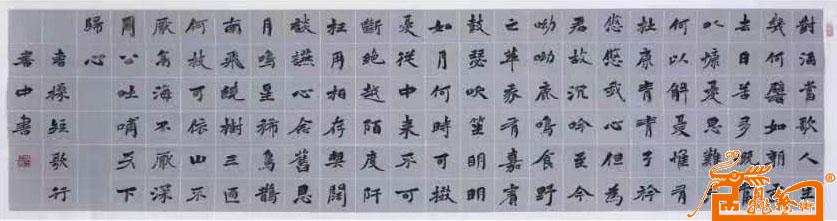 對酒當歌人生
幾何譬如朝
去日苦多
以慷憂思難
何以解憂惟有
杜康青青子衿
悠悠我心但為
君故沉吟至今
呦呦鹿鳴食野
之苹我有嘉賓
鼓瑟吹笙明明
如月何時可掇
憂從中來不可
斷絕越陌度阡
枉用相存契闊
談讌心念舊恩
月鳴星稀烏鵲
南飛繞樹三匝
何枝可依山不
厭高海不厭深
周公吐哺天下
歸心
操短歌行
書中書